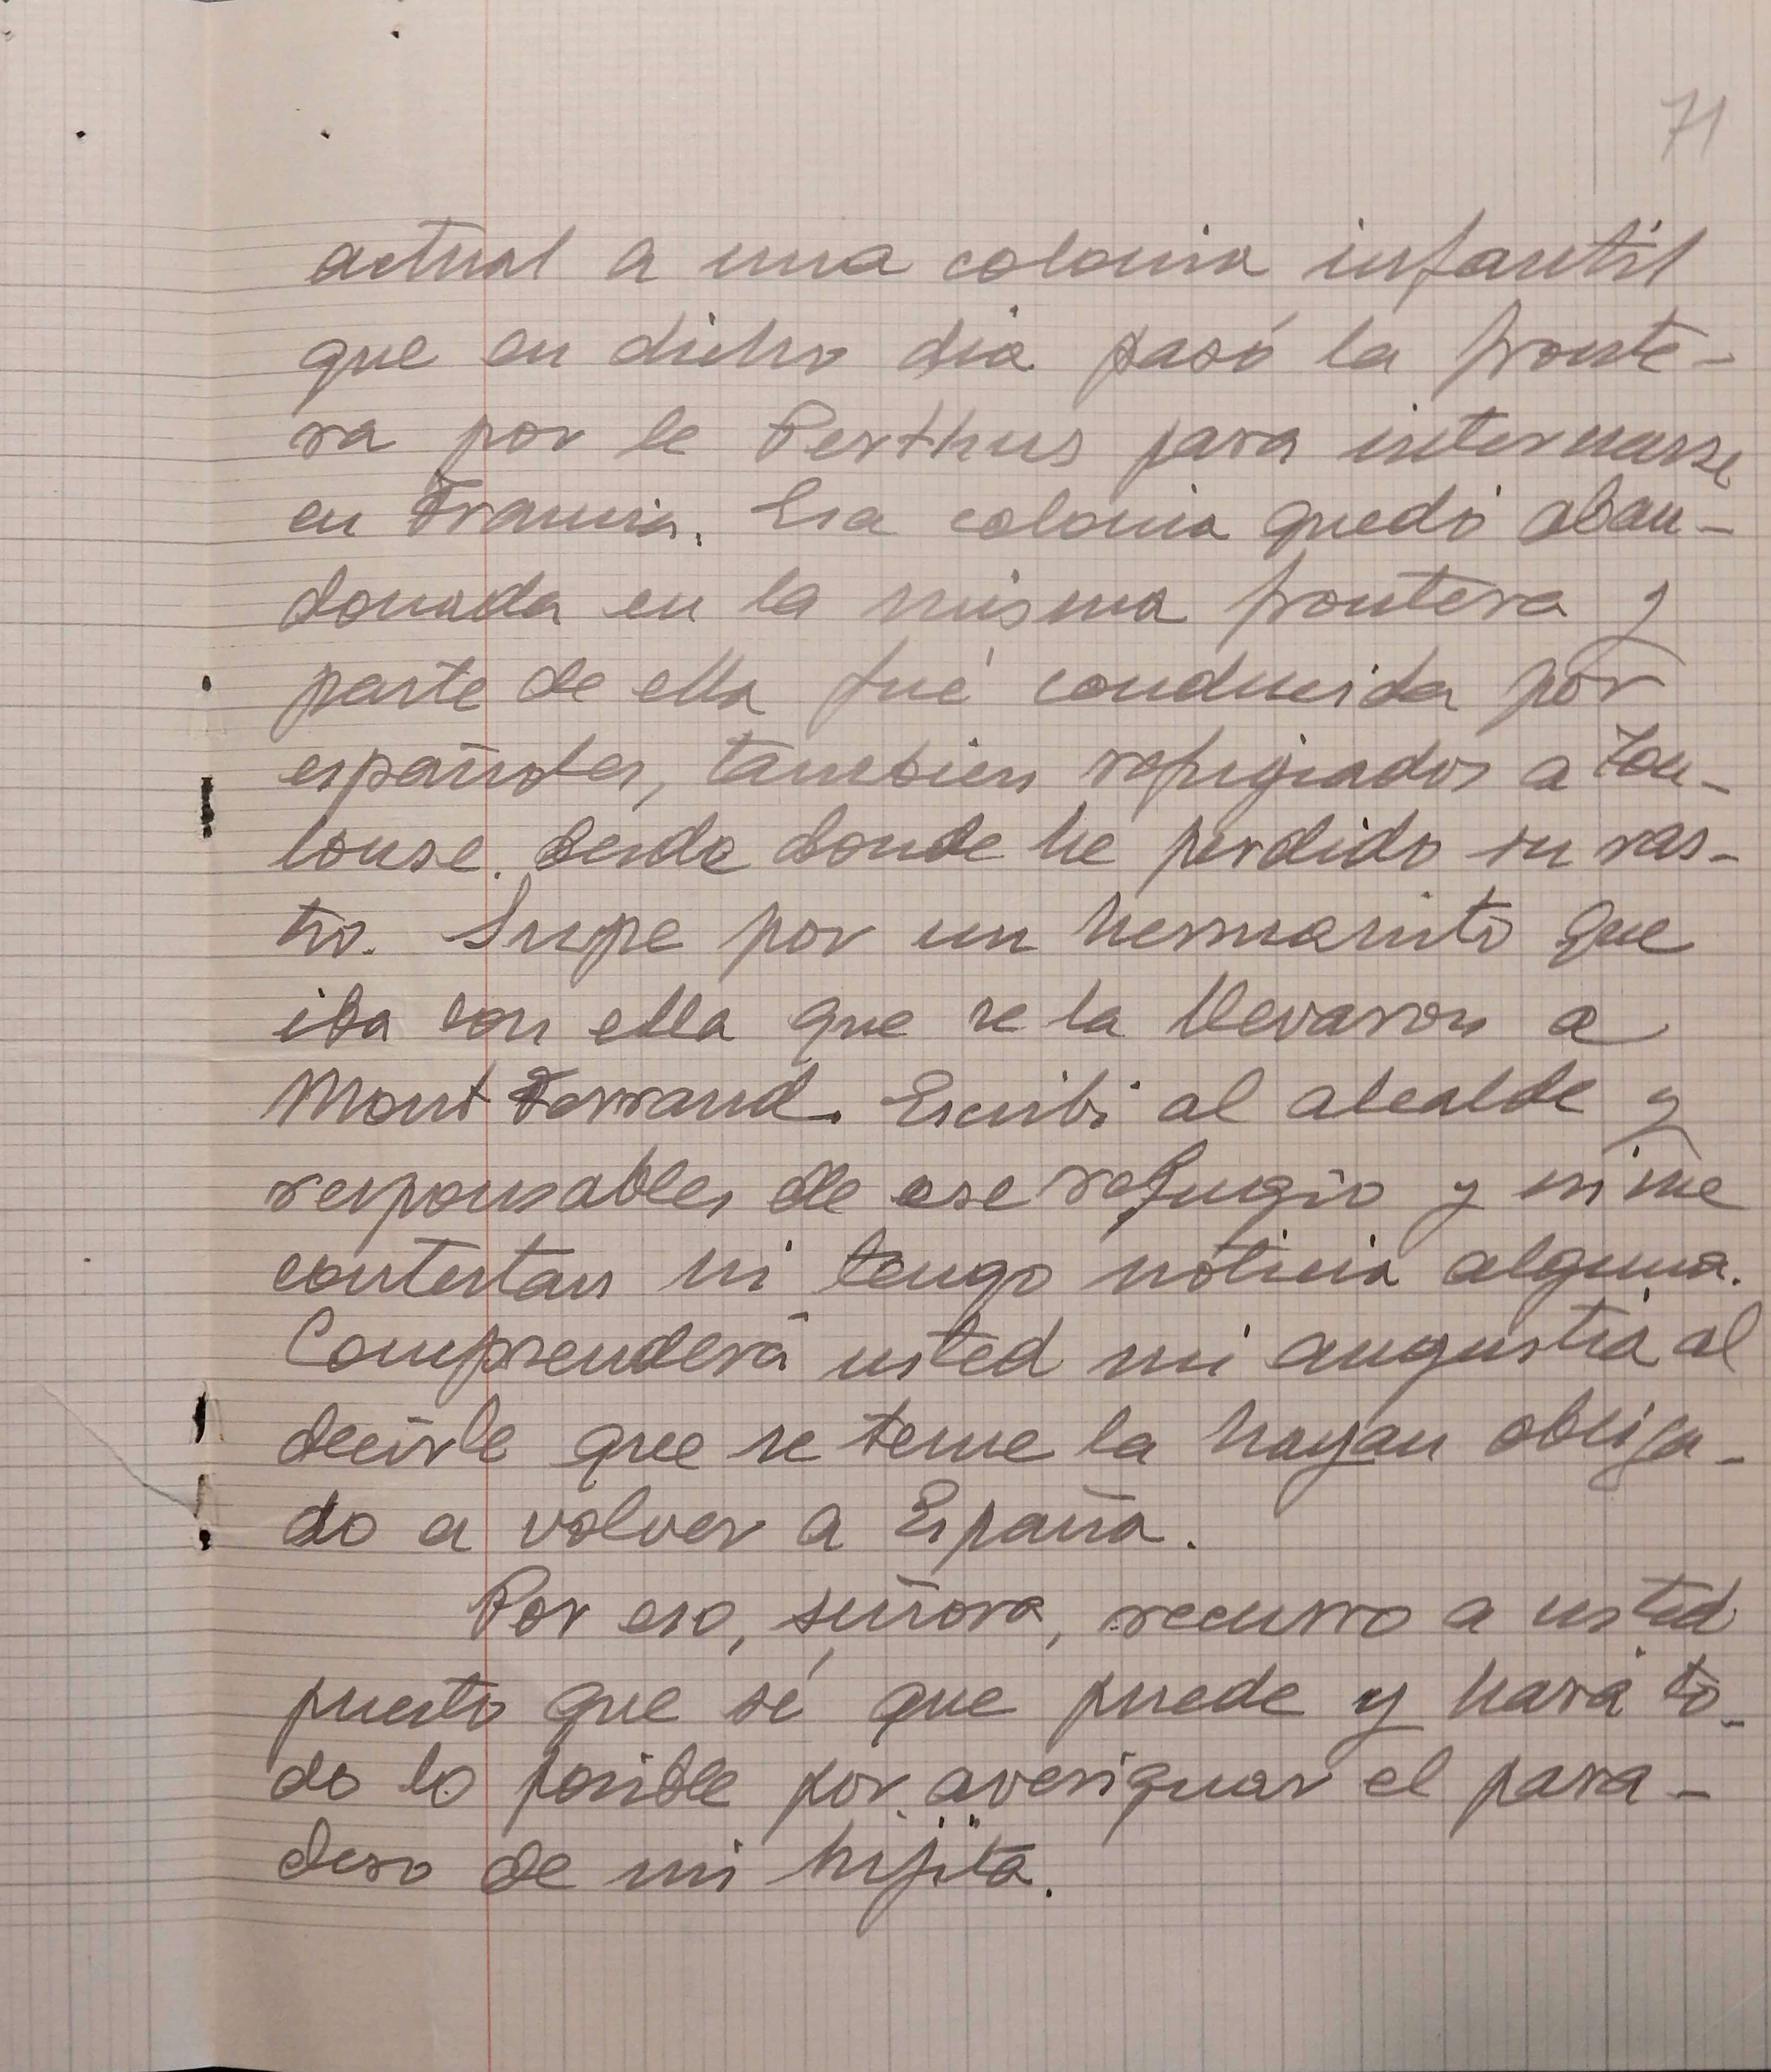 71
actual a una colonia infantil
que en dicho dia pasó la fronte-
ra por le Perthus para internarse
en Francia. Esa colonia quedó aban-
donada en la misma frontera y
parte de ella fué conducida por
españoles, tambien refugiados a Tou-
louse. desde donde he perdido su ras-
tro. Supe por un hermanito que
iba con ella que se la llevaron a
Mont Ferrand. Escribi al alcalde y
responsables de ese refugio y ni me
contestan ni tengo noticia alguna.
Comprenderá usted mi angustia al
decirle que se teme la hayan obliga-
do a volver a España.
Por eso, señora, recurro a usted
puesto que sé que puede y hará to-
do lo posible por averiguar el para-
dero de mi hijita.